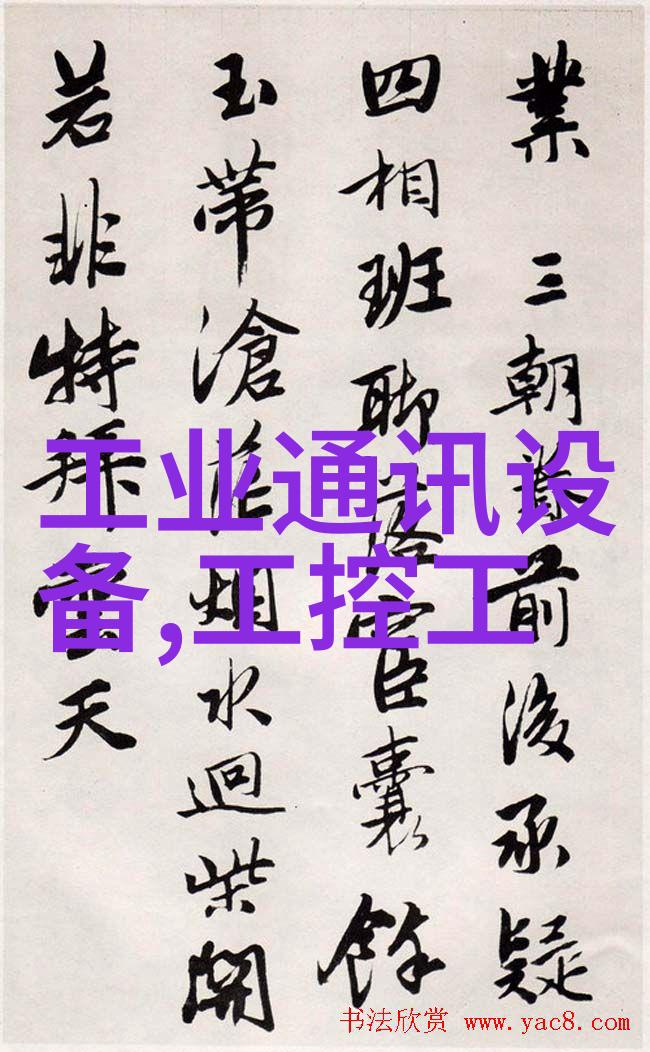 業 三朝前後承疑
四相班聊臣囊餘
玉帶滄烟水迴柴開
若非特拜雲天
工业通讯设
备,工控工
书法欣赏 www.yac8.com